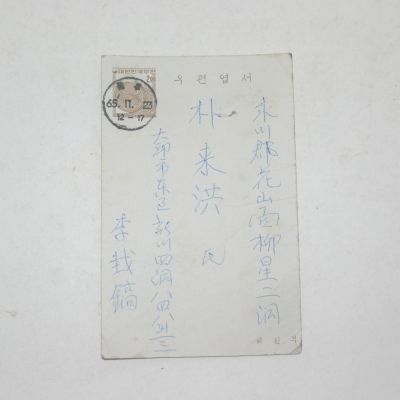 대한민국우표
우편엽서
65.11.23
12-17
永川郡花山面柳星二洞
朴来洪 氏
大邱市东区新川四洞
李哉鎬
체신부